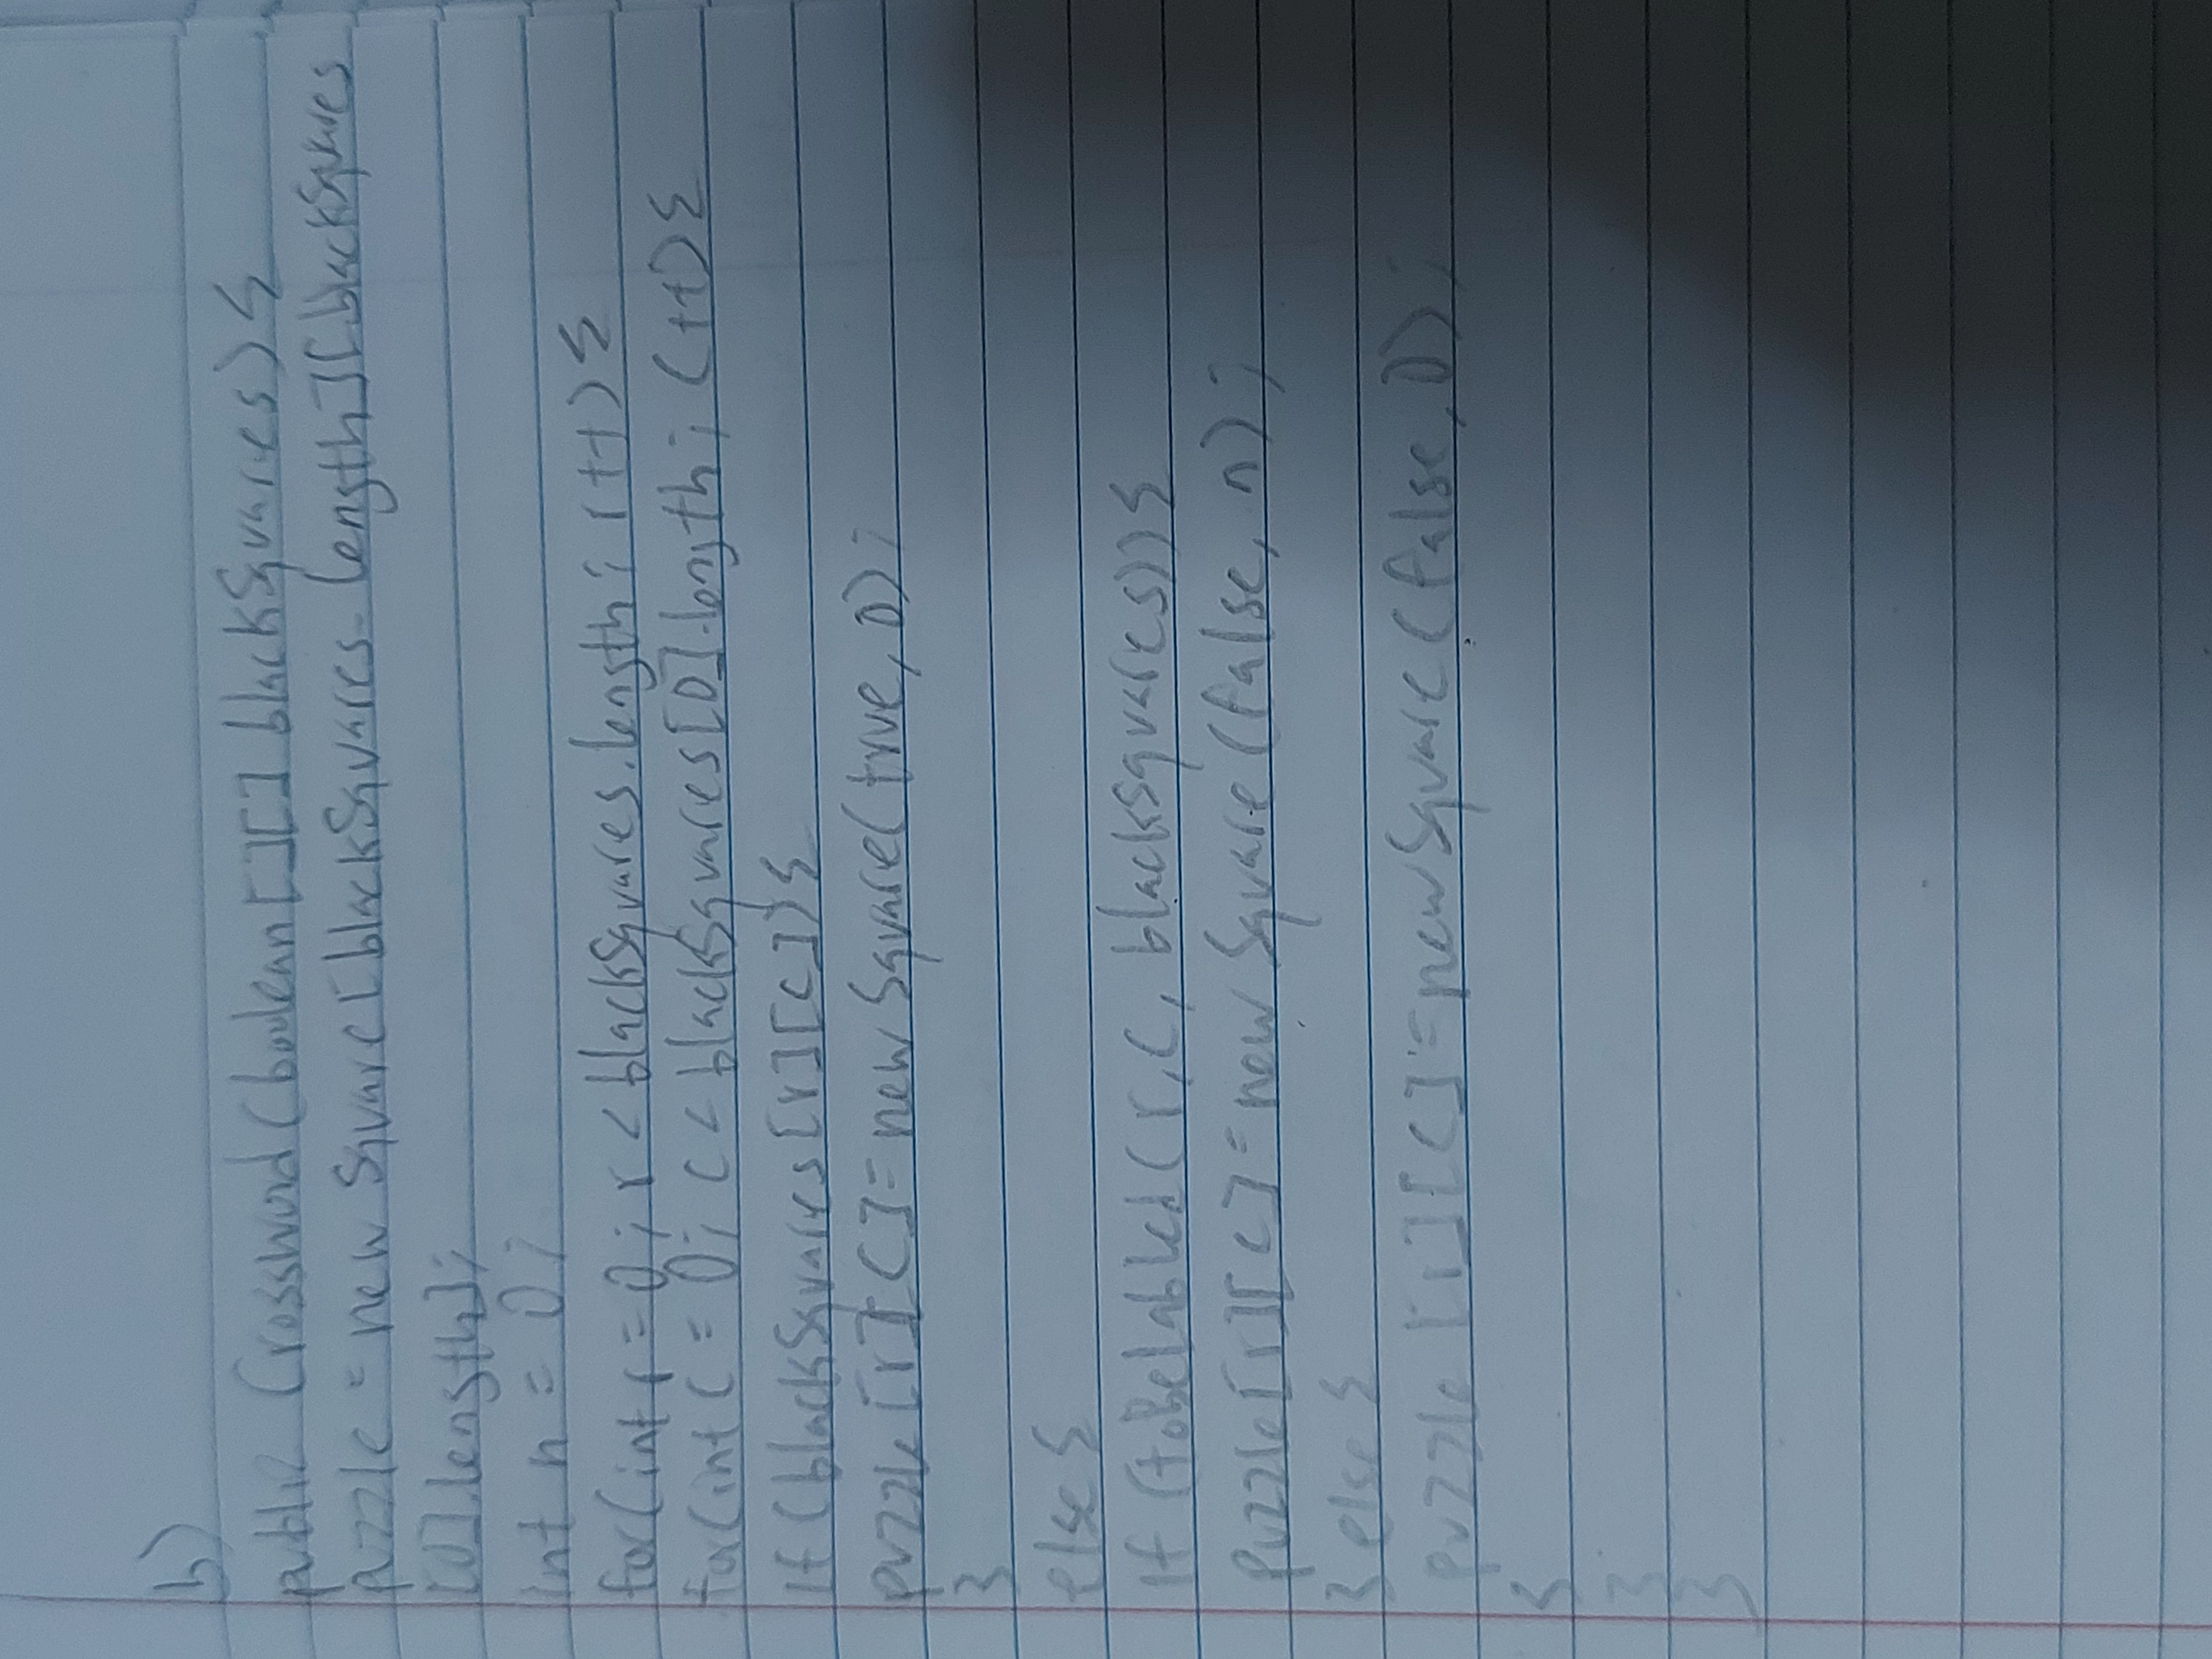 b)
public Crossword(boolean[][] blackSquares) {
puzzle = new Square[blackSquares.length][blackSquares
[0].length];
int n = 0;
for(int r = 0; r < blackSquares.length; r++) {
for(int c = 0; c < blackSquares[0].length; c++) {
if (blackSquares[r][c]) {
puzzle[r][c] = new Square(true, 0);
}
else {
if (toBeLabled(r, c, blackSquares)) {
puzzle[r][c] = new Square(false, n);
} else {
puzzle [r][c] = new Square(false, 0);
{
}
}